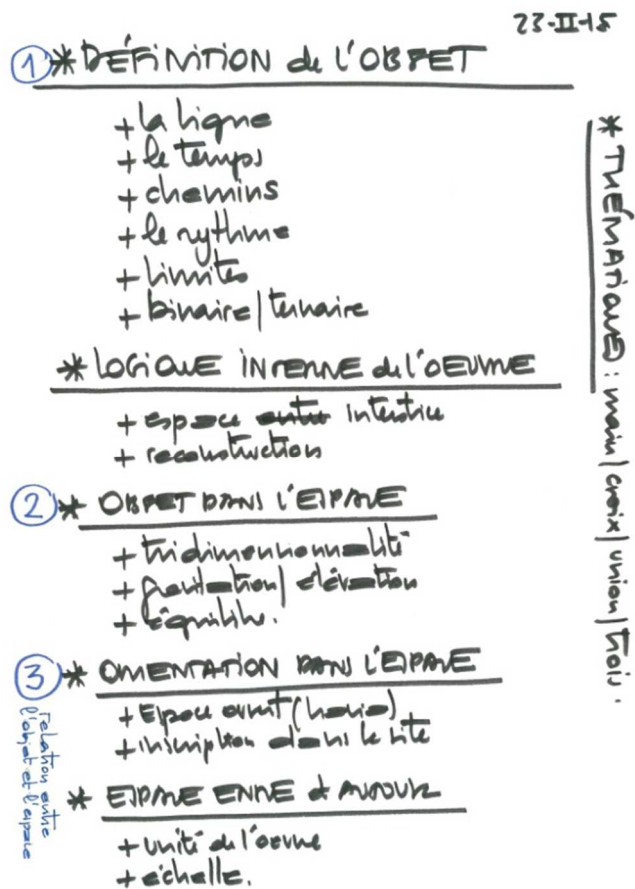 23-II-15
① * DÉFINITION de L'OBJET
+ la ligne
+ le temps
+ chemins
+ le rythme
+ limites
+ binaire / ternaire
* LOGIQUE INTERNE de l'OEUVRE
+ espace entre interstice
+ reconstruction
② * OBJET DANS L'ESPACE
+ tridimensionnalité
+ gravitation / élévation
+ l'équilibre.
③ * ORIENTATION DANS L'ESPACE
+ Espace ouvert
+ inscription dans le site
* ESPACE ENTRE et AUTOUR
+ unité de l'oeuvre
+ échelle.
relation entre
l'objet et l'espace
* THÉMATIQUES : main / croix / union / trois.